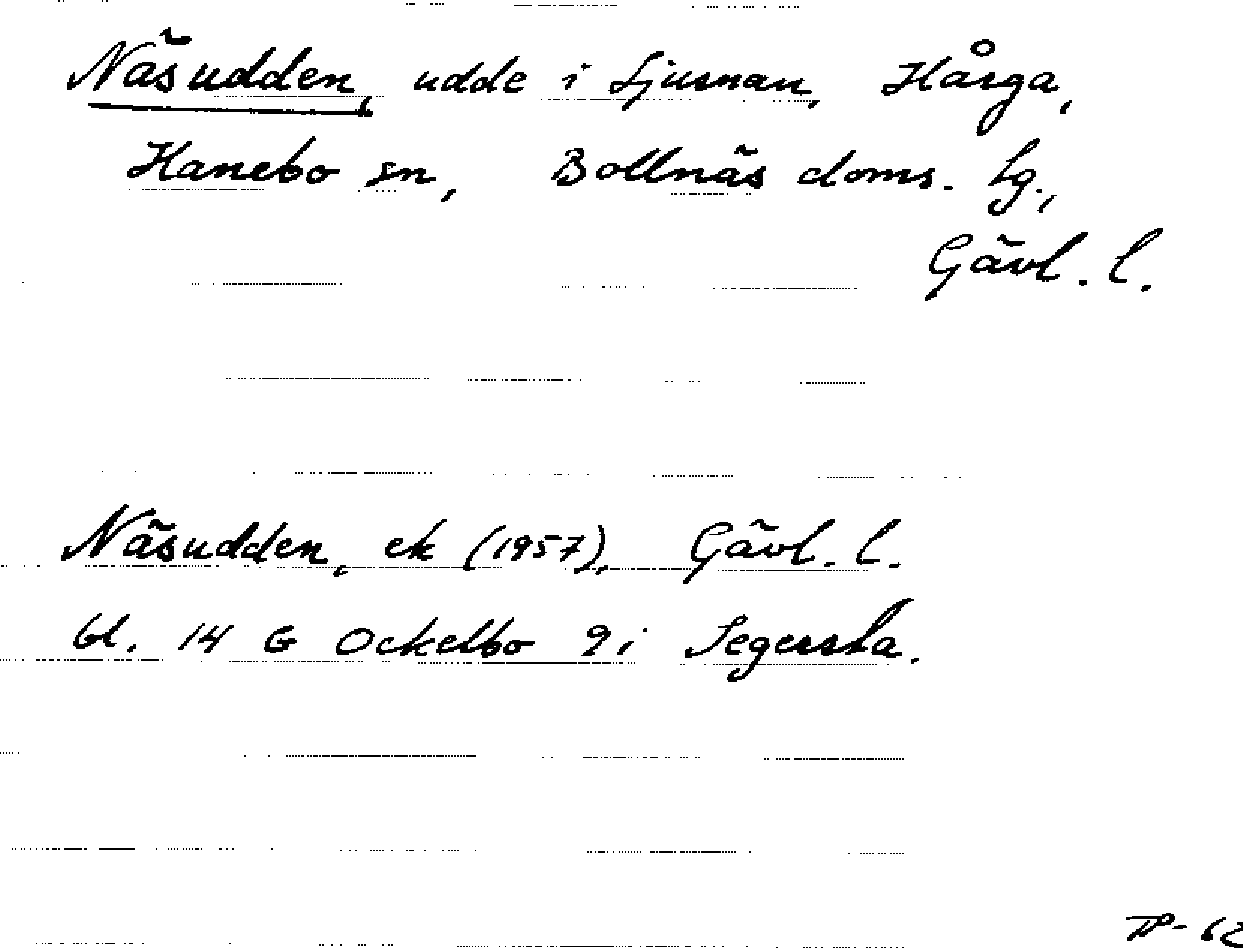 Näsudden, udde i Ljusnan, Hårga,
Hanebo sn, Bollnäs doms. hg.,
Gävl. l.
Näsudden, ek (1957), Gävl. l.
bl. 14 G Ockelbo 9i Segersta.
TP-62